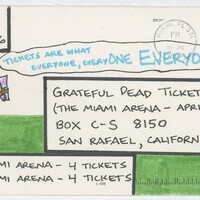 TICKETS ARE WHAT
EVERYONE, EVERYONE EVERYO
GRATEFUL DEAD TICKET
(THE MIAMI ARENA - APRI
BOX C-S 8150
SAN RAFAEL, CALIFORN
MI ARENA - 4 TICKETS
MI ARENA - 4 TICKETS
PM